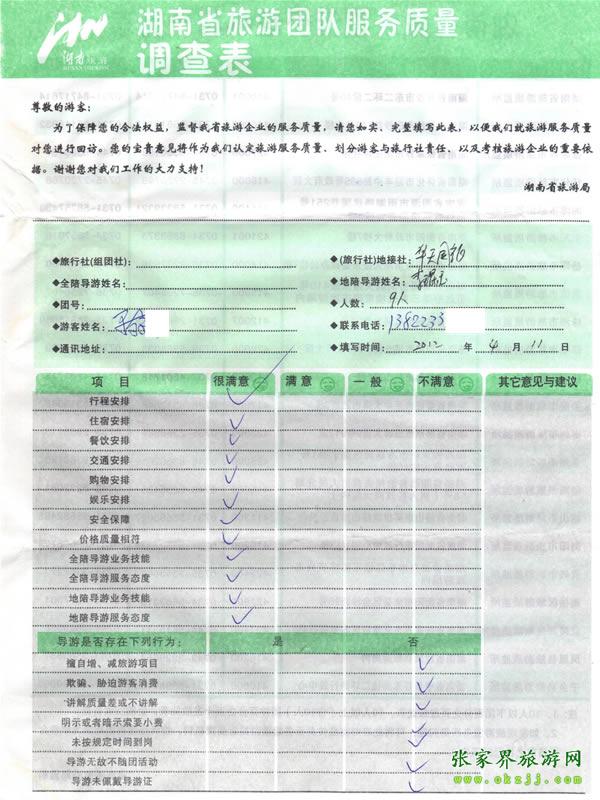 湖南旅游
HUNAN TOURISM
湖南省旅游团队服务质量
调查表
尊敬的游客:
为了保障您的合法权益,监督我省旅游企业的服务质量,请您如实、完整填写此表,以便我们就旅游服务质量
对您进行回访。您的宝贵意见将作为我们认定旅游服务质量、划分游客与旅行社责任、以及考核旅游企业的重要依
据。谢谢您对我们工作的大力支持!
湖南省旅游局
◆旅行社(组团社):
◆(旅行社)地接社: 华天国旅
◆全陪导游姓名:
◆地陪导游姓名:
◆团号:
◆人数: 9人
◆游客姓名:
◆联系电话: 1382233
◆通讯地址:
◆填写时间: 2012 年 4 月 11 日
项 目 很满意 满意 一般 不满意 其它意见与建议
行程安排 ✓
住宿安排 ✓
餐饮安排 ✓
交通安排 ✓
购物安排 ✓
娱乐安排 ✓
安全保障 ✓
价格质量相符 ✓
全陪导游业务技能 ✓
全陪导游服务态度 ✓
地陪导游业务技能 ✓
地陪导游服务态度 ✓
导游是否存在下列行为: 是 否
擅自增、减旅游项目 ✓
欺骗、胁迫游客消费 ✓
讲解质量差或不讲解 ✓
明示或者暗示索要小费 ✓
未按规定时间到岗 ✓
导游无故不随团活动 ✓
导游未佩戴导游证 ✓
张家界旅游网
www.okzjj.com